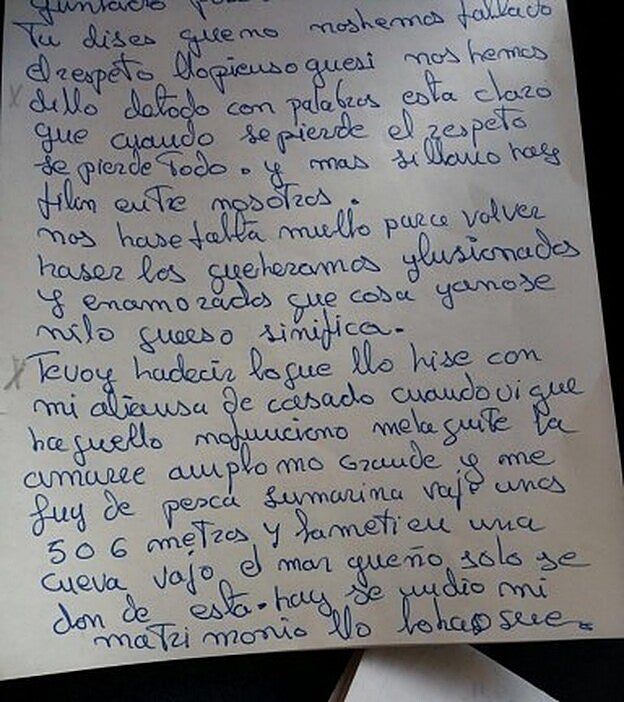 Tu dises queno noshemos faltado
el respeto llo pienso quesi nos hemos
dillo detodo con palabras esta claro
que cuando sepierde el respeto
se pierde Todo. y mas si llano hay
filin entre nosotros.
nos hase falta mullo para volver
haser los queheramos ylusionados
y enamorados que cosa yanose
nilo queeso sinifica.
Tevoy hadecir loque llo hise con
mi aliansa de casado cuando vi que
haquello nofunciono melaquite la
amarre auuplomo Grande y me
fuy de pesca sumarina vaje unos
5 0 6 metros y lameti en una
cueva vajo el mar queño solo se
don de esta. hay se undio mi
matrimonio llo